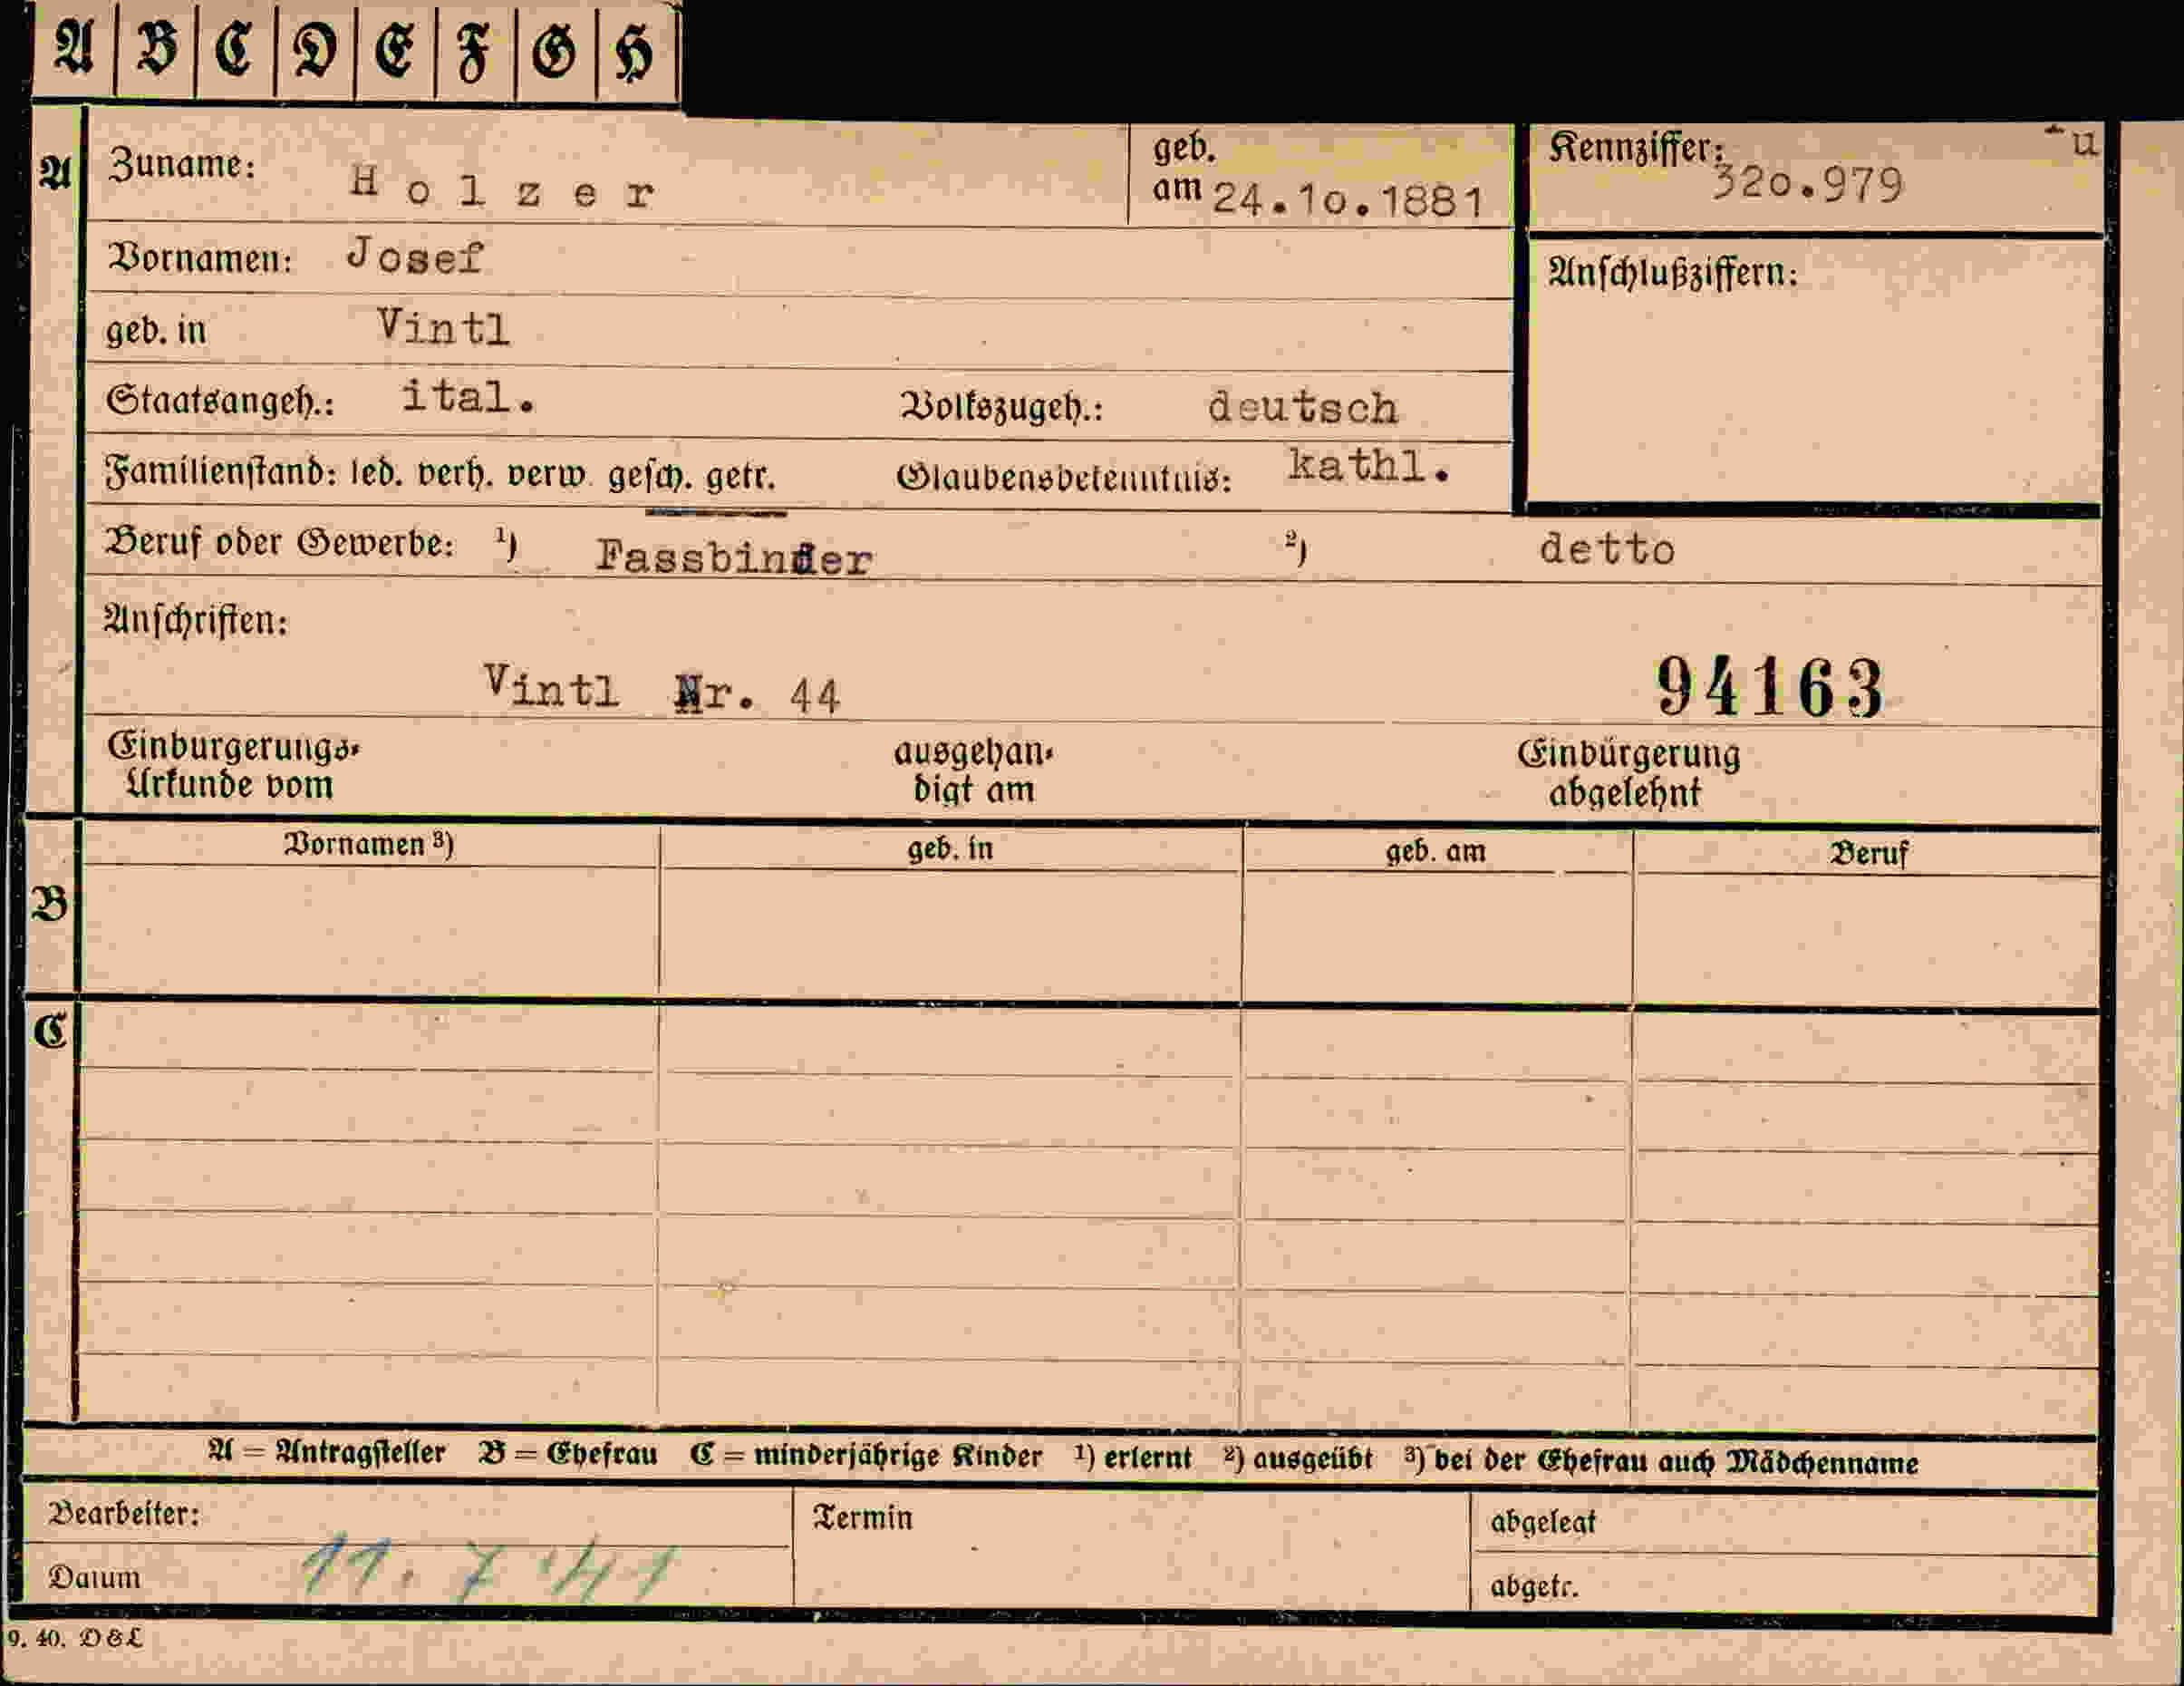 A B C D E F G H
A Zuname: Holzer geb. am 24.10.1881 Kennziffer: 320.979 u
Vornamen: Josef Anschlußziffern:
geb. in Vintl
Staatsangeh.: ital. Volkszugeh.: deutsch
Familienstand: led. verh. verw. gesch. getr. Glaubensbekenntnis: kathl.
Beruf oder Gewerbe: 1) Fassbinder 2) detto
Anschriften:
Vintl Nr. 44 94163
Einbürgerungs- ausgehän- Einbürgerung
Urkunde vom digt am abgelehnt
Vornamen 3) geb. in geb. am Beruf
B
C
A = Antragsteller B = Ehefrau C = minderjährige Kinder 1) erlernt 2) ausgeübt 3) bei der Ehefrau auch Mädchenname
Bearbeiter: Termin abgelegt
Datum 11. 7. 41 abgetr.
9. 40. D&L